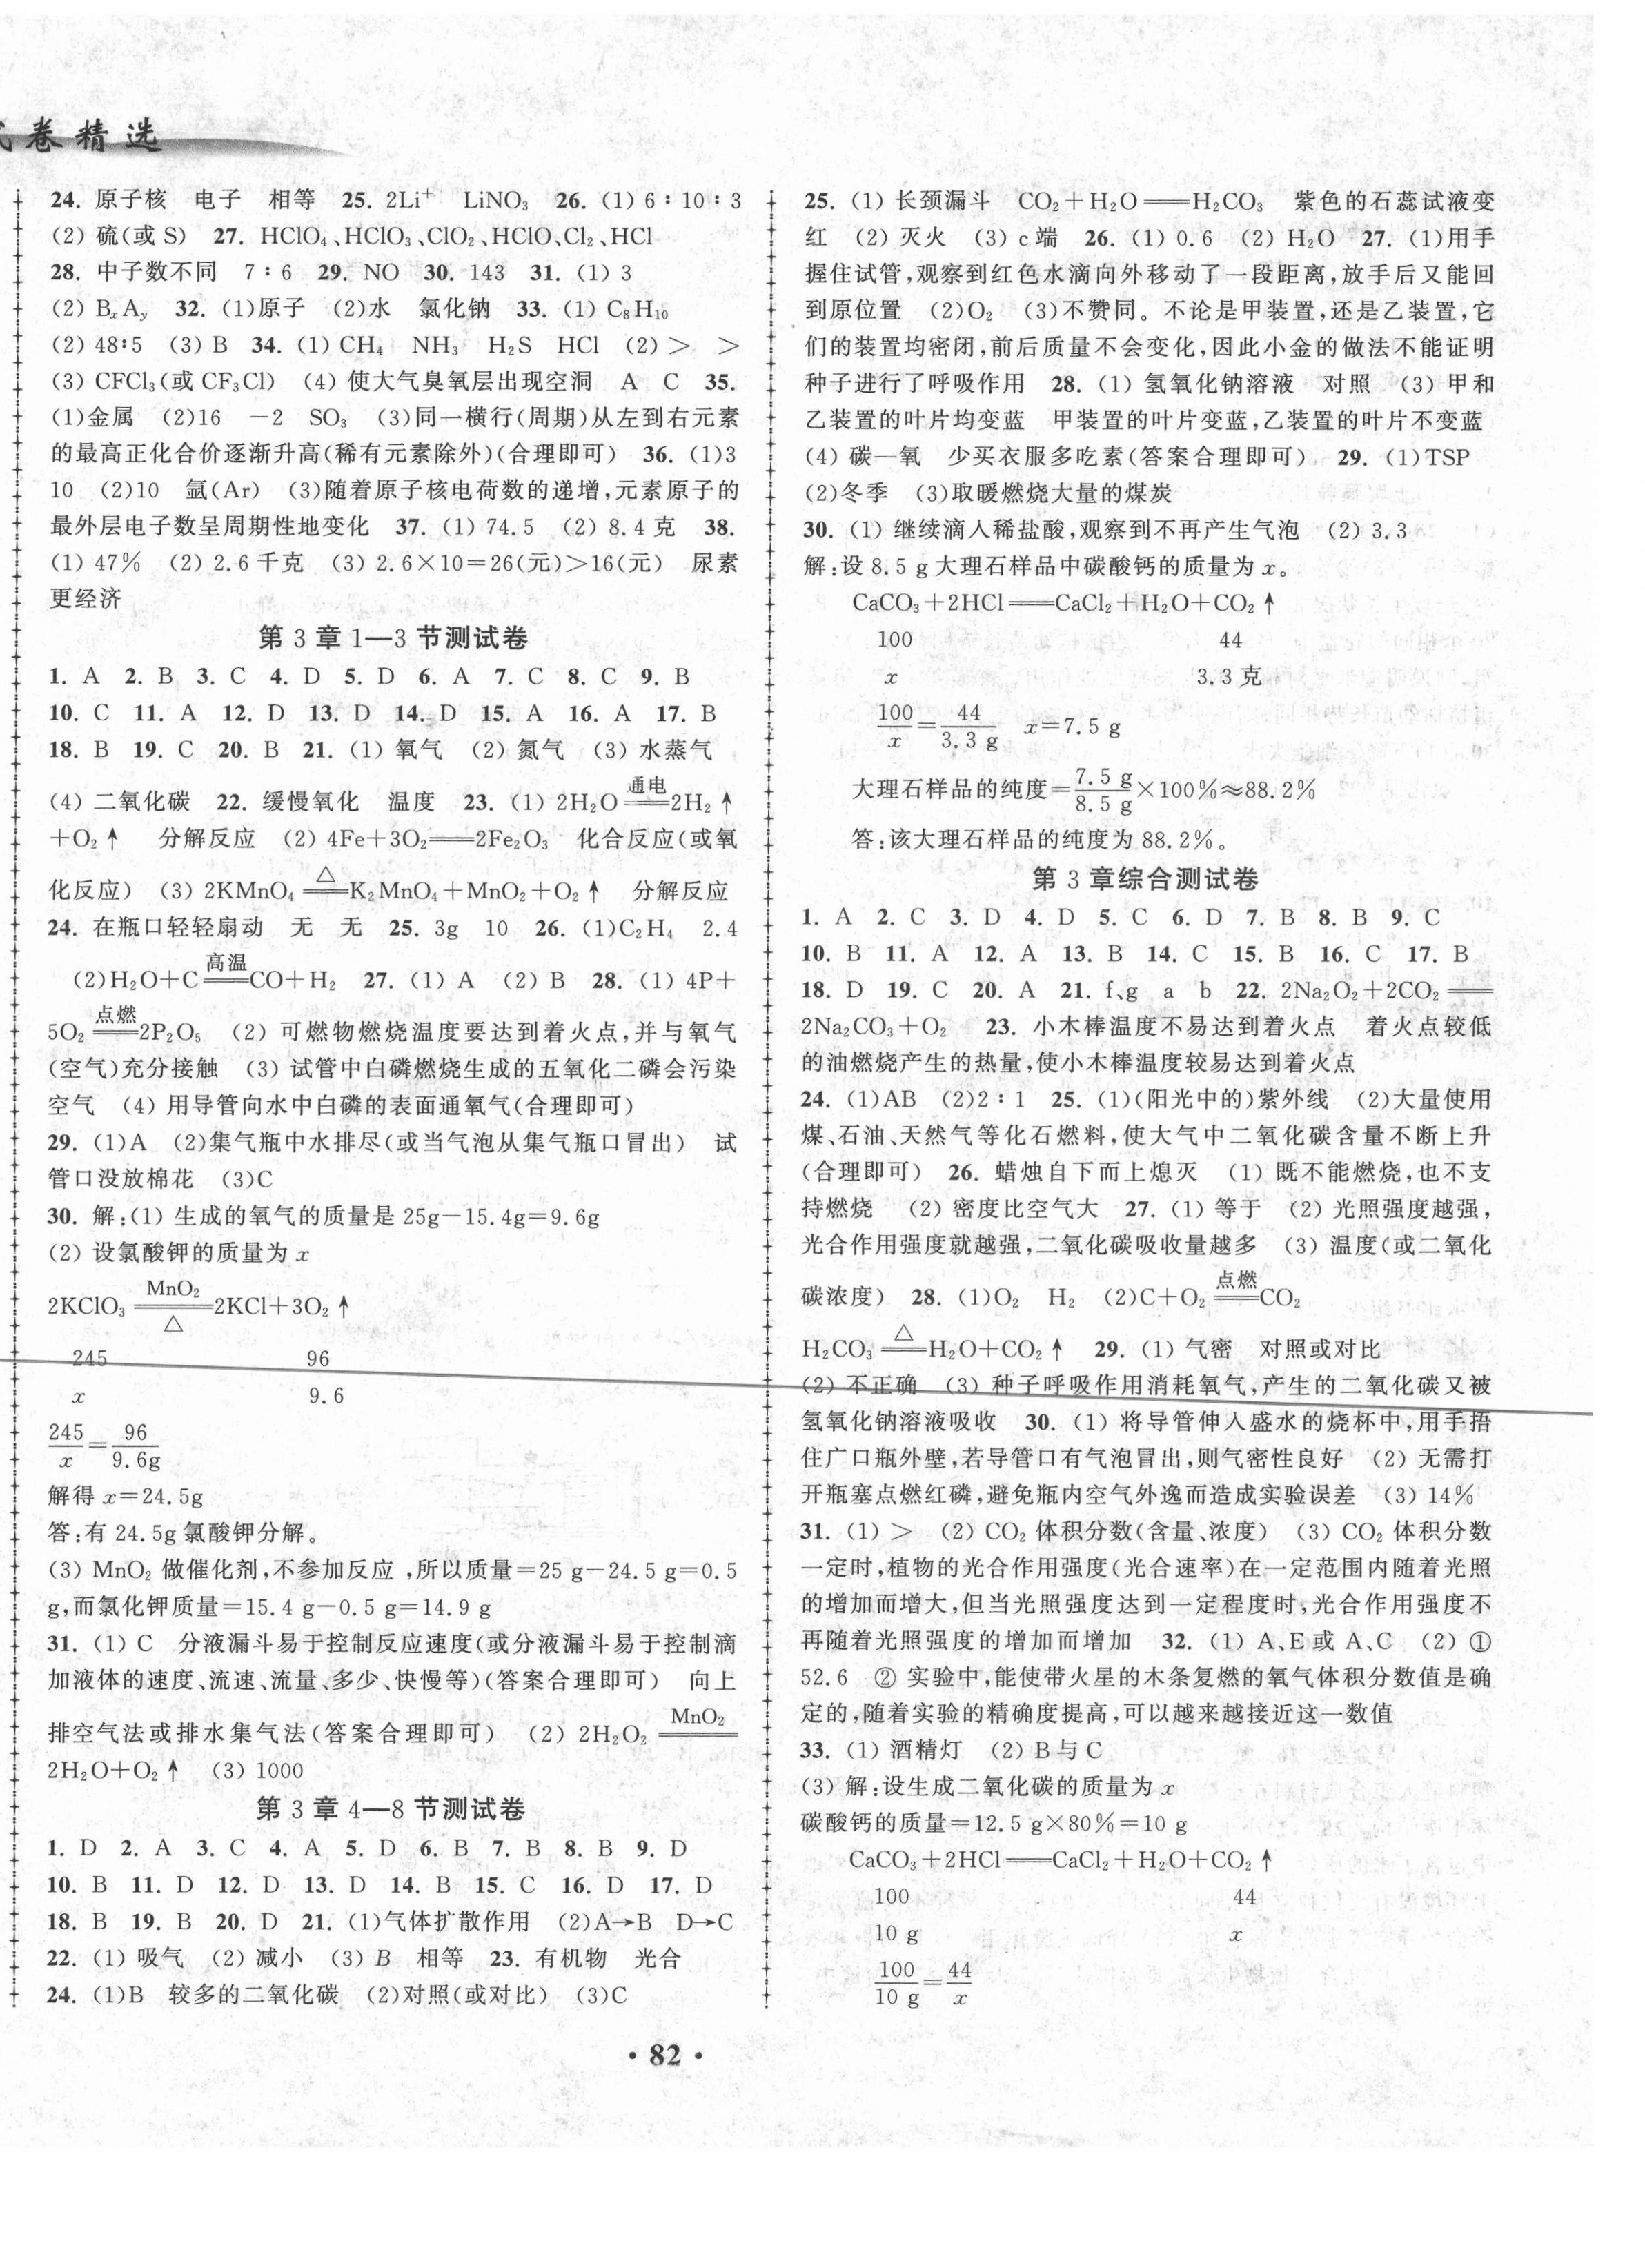 卷精选
24. 原子核　电子　相等　25. 2Li⁺　LiNO₃　26. (1) 6∶10∶3
(2) 硫(或 S)　27. HClO₄、HClO₃、ClO₂、HClO、Cl₂、HCl
28. 中子数不同　7∶6　29. NO　30. 143　31. (1) 3
(2) BₓAᵧ　32. (1)原子　(2)水　氯化钠　33. (1) C₈H₁₀
(2) 48∶5　(3) B　34. (1) CH₄　NH₃　H₂S　HCl　(2) ＞　＞
(3) CFCl₃(或 CF₃Cl)　(4) 使大气臭氧层出现空洞　A　C　35.
(1)金属　(2)16　－2　SO₃　(3)同一横行(周期)从左到右元素
的最高正化合价逐渐升高(稀有元素除外)(合理即可)　36. (1)3
10　(2)10　氩(Ar)　(3)随着原子核电荷数的递增,元素原子的
最外层电子数呈周期性地变化　37. (1) 74.5　(2) 8.4 克　38.
(1) 47%　(2) 2.6 千克　(3) 2.6×10＝26(元)＞16(元)　尿素
更经济
第 3 章 1—3 节测试卷
1. A　2. B　3. C　4. D　5. D　6. A　7. C　8. C　9. B
10. C　11. A　12. D　13. D　14. D　15. A　16. A　17. B
18. B　19. C　20. B　21. (1) 氧气　(2) 氮气　(3) 水蒸气
(4) 二氧化碳　22. 缓慢氧化　温度　23. (1) 2H₂O ═通电═ 2H₂↑
＋O₂↑　分解反应　(2) 4Fe＋3O₂═══2Fe₂O₃　化合反应(或氧
化反应)　(3) 2KMnO₄ ═△═ K₂MnO₄＋MnO₂＋O₂↑　分解反应
24. 在瓶口轻轻扇动　无　无　25. 3g　10　26. (1)C₂H₄　2.4
(2)H₂O＋C ═高温═ CO＋H₂　27. (1) A　(2) B　28. (1) 4P＋
5O₂ ═点燃═ 2P₂O₅　(2) 可燃物燃烧温度要达到着火点,并与氧气
(空气)充分接触　(3) 试管中白磷燃烧生成的五氧化二磷会污染
空气　(4) 用导管向水中白磷的表面通氧气(合理即可)
29. (1)A　(2)集气瓶中水排尽(或当气泡从集气瓶口冒出)　试
管口没放棉花　(3)C
30. 解:(1) 生成的氧气的质量是 25g－15.4g＝9.6g
(2) 设氯酸钾的质量为 x
MnO₂
2KClO₃ ═══ 2KCl＋3O₂↑
△
245　96
x　9.6
245/x＝96/9.6g
解得 x＝24.5g
答:有 24.5g 氯酸钾分解。
(3) MnO₂ 做催化剂,不参加反应 ,所以质量＝25 g－24.5 g＝0.5
g,而氯化钾质量＝15.4 g－0.5 g＝14.9 g
31. (1) C　分液漏斗易于控制反应速度(或分液漏斗易于控制滴
加液体的速度、流速、流量、多少、快慢等)(答案合理即可)　向上
排空气法或排水集气法(答案合理即可)　(2) 2H₂O₂ ═MnO₂═
2H₂O＋O₂↑　(3) 1000
第 3 章 4—8 节测试卷
1. D　2. A　3. C　4. A　5. D　6. B　7. B　8. B　9. D
10. B　11. D　12. D　13. D　14. B　15. C　16. D　17. D
18. B　19. B　20. D　21. (1)气体扩散作用　(2)A→B　D→C
22. (1) 吸气　(2) 减小　(3) B　相等　23. 有机物　光合
24. (1)B　较多的二氧化碳　(2)对照(或对比)　(3)C
25. (1) 长颈漏斗　CO₂＋H₂O═══H₂CO₃　紫色的石蕊试液变
红　(2) 灭火　(3) c 端　26. (1) 0.6　(2) H₂O　27. (1)用手
握住试管,观察到红色水滴向外移动了一段距离,放手后又能回
到原位置　(2)O₂　(3)不赞同。不论是甲装置,还是乙装置,它
们的装置均密闭,前后质量不会变化,因此小金的做法不能证明
种子进行了呼吸作用　28. (1) 氢氧化钠溶液　对照　(3) 甲和
乙装置的叶片均变蓝　甲装置的叶片变蓝,乙装置的叶片不变蓝
(4) 碳一氧　少买衣服多吃素(答案合理即可)　29. (1)TSP
(2)冬季　(3)取暖燃烧大量的煤炭
30. (1) 继续滴入稀盐酸,观察到不再产生气泡　(2) 3.3
解:设 8.5 g 大理石样品中碳酸钙的质量为 x。
CaCO₃＋2HCl═══CaCl₂＋H₂O＋CO₂↑
100　44
x　3.3 克
100/x＝44/3.3 g　x＝7.5 g
大理石样品的纯度＝7.5 g/8.5 g×100%≈88.2%
答:该大理石样品的纯度为 88.2%。
第 3 章综合测试卷
1. A　2. C　3. D　4. D　5. C　6. D　7. B　8. B　9. C
10. B　11. A　12. A　13. B　14. C　15. B　16. C　17. B
18. D　19. C　20. A　21. f、g　a　b　22. 2Na₂O₂＋2CO₂═══
2Na₂CO₃＋O₂　23. 小木棒温度不易达到着火点　着火点较低
的油燃烧产生的热量,使小木棒温度较易达到着火点
24. (1)AB　(2)2∶1　25. (1)(阳光中的)紫外线　(2)大量使用
煤、石油、天然气等化石燃料,使大气中二氧化碳含量不断上升
(合理即可)　26. 蜡烛自下而上熄灭　(1) 既不能燃烧,也不支
持燃烧　(2) 密度比空气大　27. (1) 等于　(2) 光照强度越强,
光合作用强度就越强,二氧化碳吸收量越多　(3) 温度(或二氧化
碳浓度)　28. (1)O₂　H₂　(2)C＋O₂ ═点燃═ CO₂
H₂CO₃ ═△═ H₂O＋CO₂↑　29. (1) 气密　对照或对比
(2) 不正确　(3) 种子呼吸作用消耗氧气,产生的二氧化碳又被
氢氧化钠溶液吸收　30. (1) 将导管伸入盛水的烧杯中,用手捂
住广口瓶外壁,若导管口有气泡冒出,则气密性良好　(2) 无需打
开瓶塞点燃红磷,避免瓶内空气外逸而造成实验误差　(3) 14%
31. (1) ＞　(2) CO₂ 体积分数(含量、浓度)　(3) CO₂ 体积分数
一定时,植物的光合作用强度(光合速率)在一定范围内随着光照
的增加而增大,但当光照强度达到一定程度时,光合作用强度不
再随着光照强度的增加而增加　32. (1) A、E 或 A、C　(2) ①
52.6　② 实验中,能使带火星的木条复燃的氧气体积分数值是确
定的,随着实验的精确度提高,可以越来越接近这一数值
33. (1) 酒精灯　(2) B 与 C
(3) 解:设生成二氧化碳的质量为 x
碳酸钙的质量＝12.5 g×80%＝10 g
CaCO₃＋2HCl═══CaCl₂＋H₂O＋CO₂↑
100　44
10 g　x
100/10 g＝44/x
• 82 •